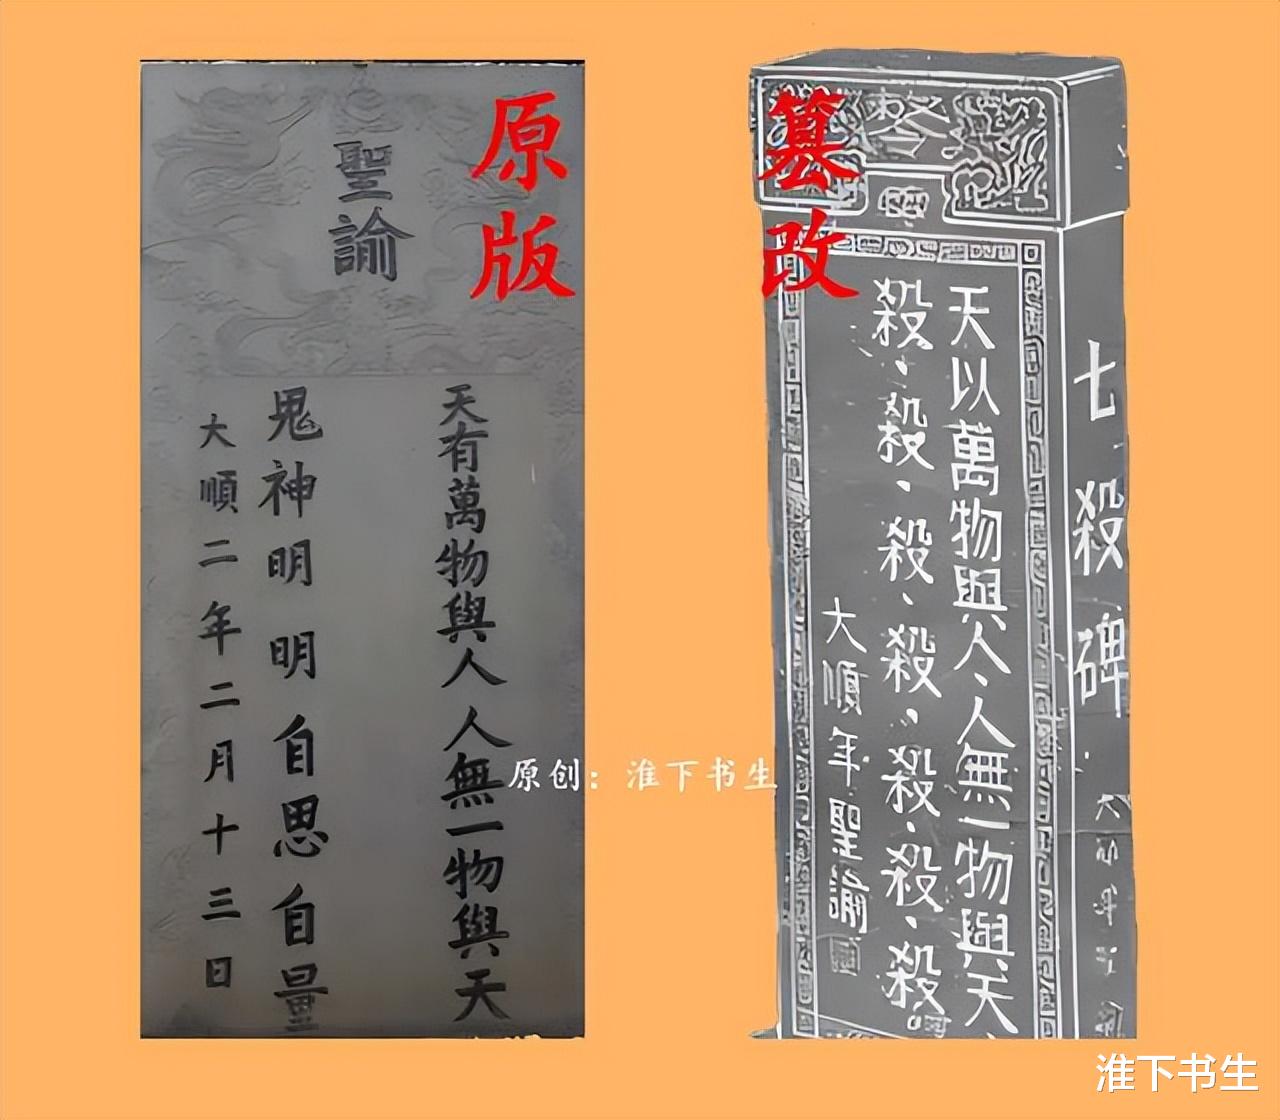 原版
聖諭
天有萬物與人人無一物與天
鬼神明明自思自量
大順二年二月十三日
篡改
天以萬物與人、人無一物與天、
殺、殺、殺、殺、殺、殺、殺
大順年聖諭
七殺碑
原创：淮下书生
淮下书生